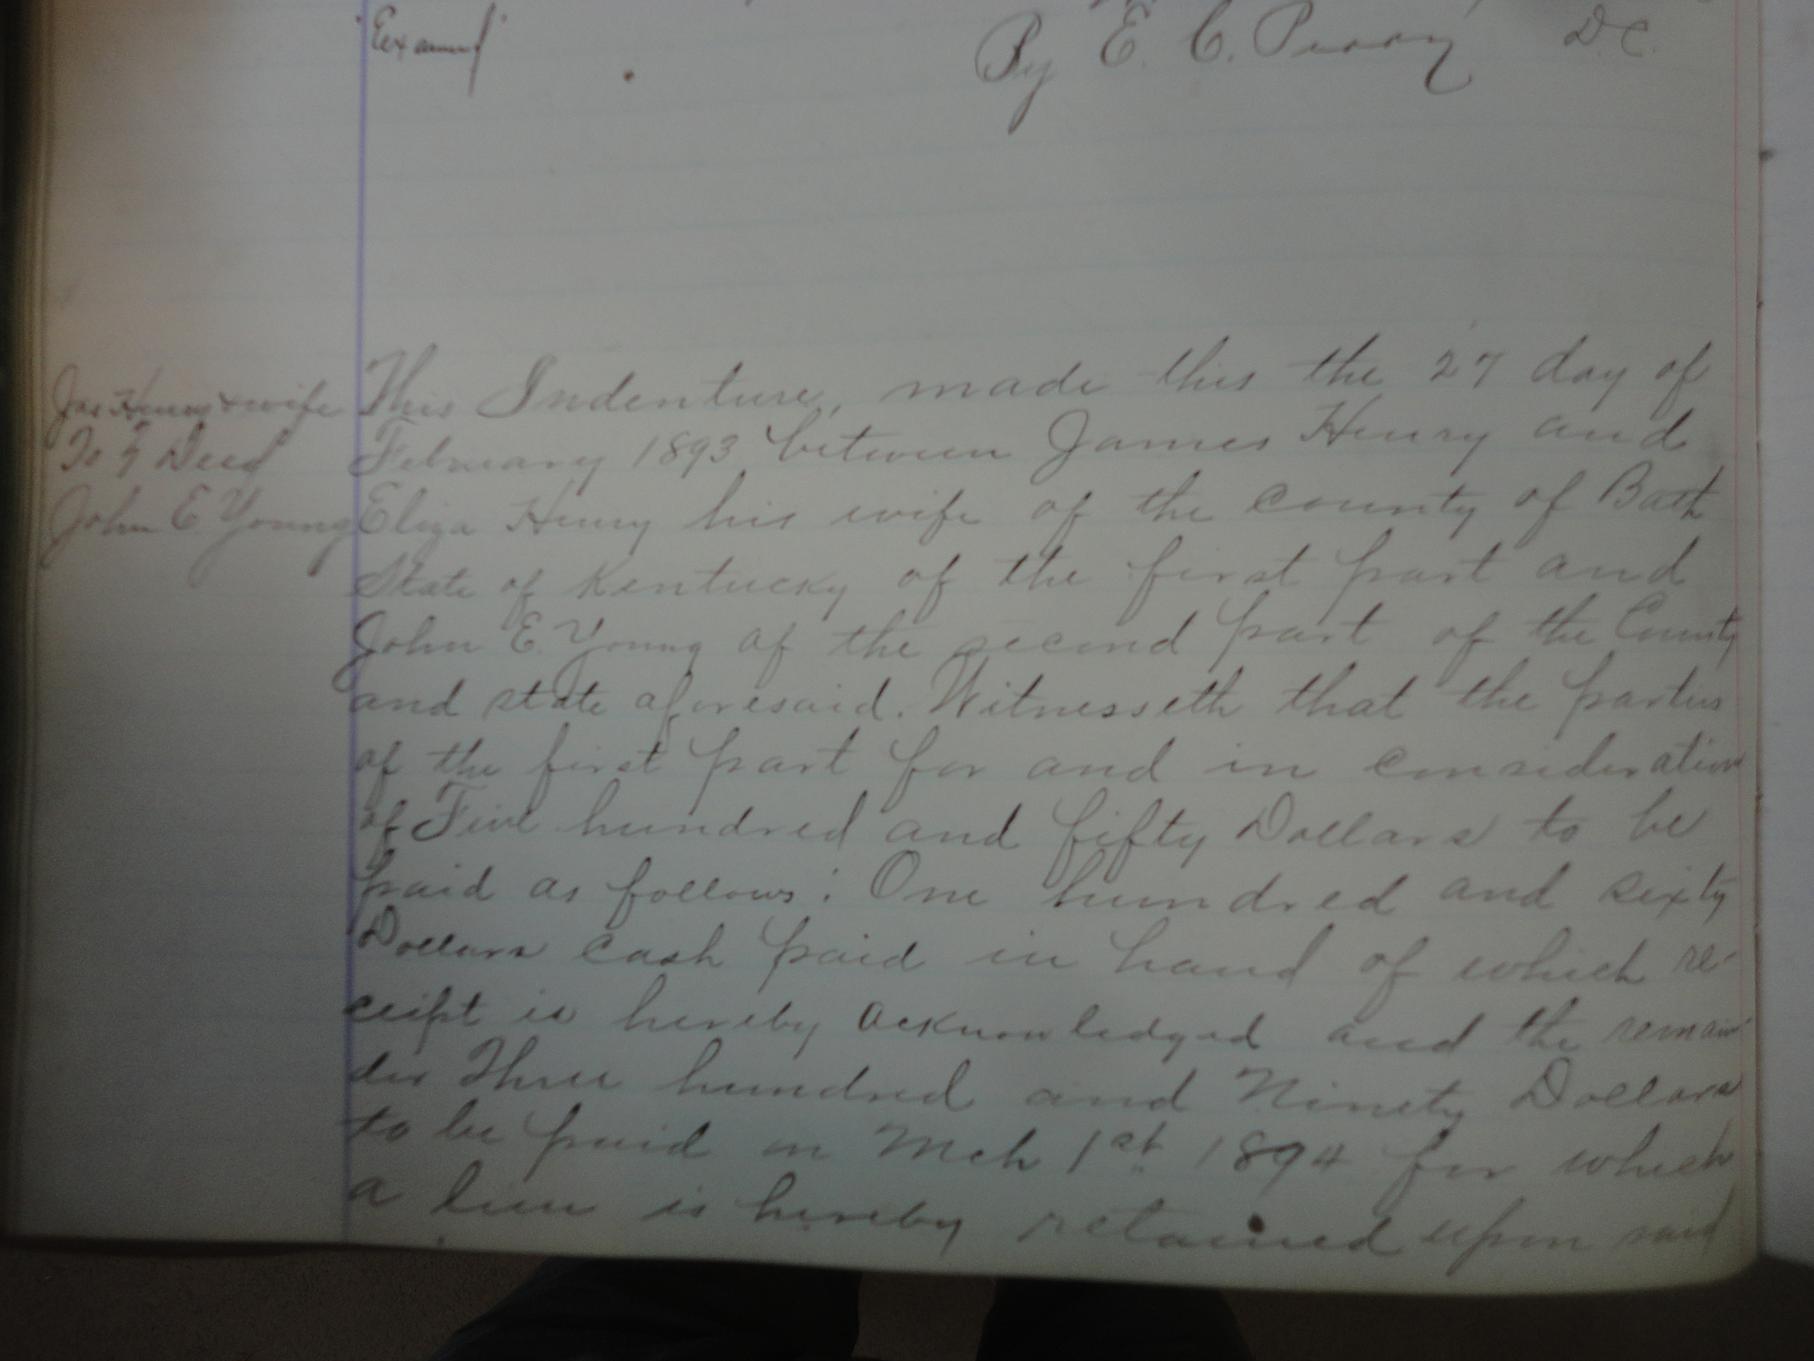 Examd
By E. C. Perry D.C.
Jas Henry & wife
To } Deed
John E Young
This Indenture, made this the 27 day of
February 1893 between James Henry and
Eliza Henry his wife of the county of Bath
State of Kentucky of the first part and
John E. Young of the second part of the County
and state aforesaid. Witnesseth that the parties
of the first part for and in consideration
of Five hundred and fifty Dollars to be
paid as follows: One hundred and sixty
Dollars cash paid in hand of which re-
ceipt is hereby acknowledged and the remain-
der Three hundred and Ninety Dollars
to be paid on Mch 1st 1894 for which
a lien is hereby retained upon said